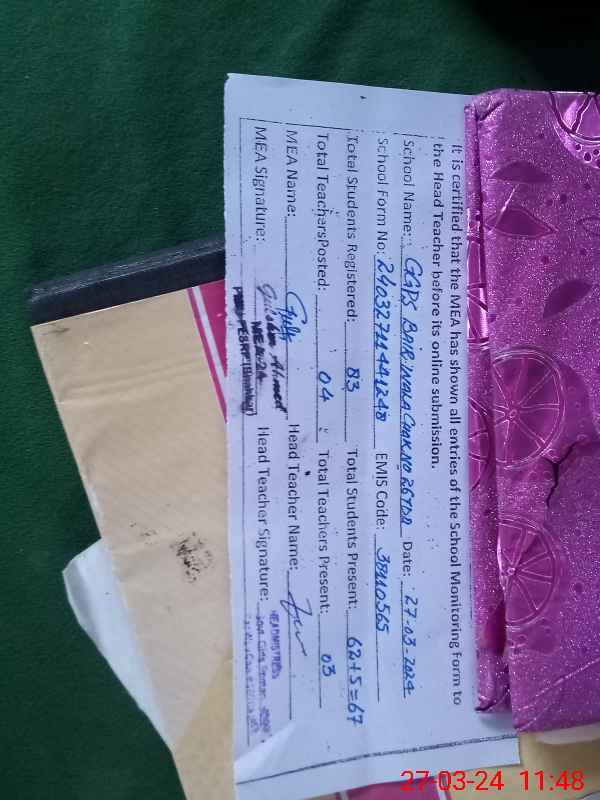 It is certified that the MEA has shown all entries of the School Monitoring Form to
the Head Teacher before its online submission.
School Name: GGPS BAIRINWALA CHAK NO 267DA Date: 27-03-2024
School Form No: EMIS Code: 38110565
Total Students Registered: 83 Total Students Present: 62+5=67
Total TeachersPosted: 04 Total Teachers Present: 03
MEA Name: Head Teacher Name:
MEA Signature: Ahmed Head Teacher Signature:
HEADMISTRESS
27-03-24 11:48